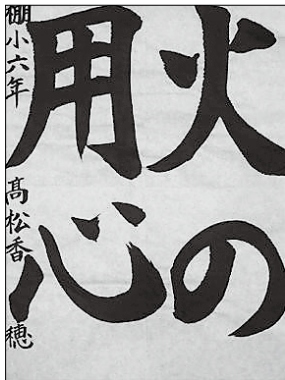 火の
用心
棚小六年 髙松香穂